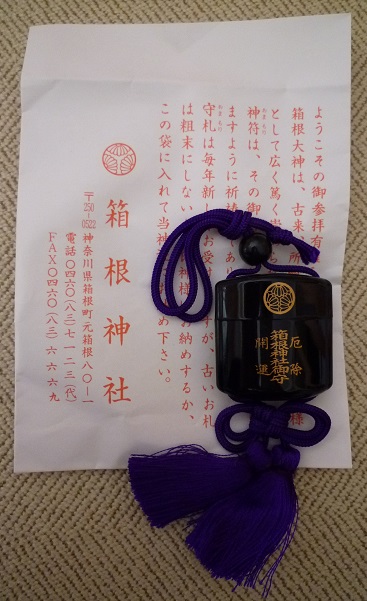 ようこその御参拝有
箱根大神は、古来 所 様
として広く篤く
神符は、その御
ますように祈 であり
守札は毎年新 お受け すが、古いお札
は粗末にしない 神様 お納めするか、
この袋に入れて当神 め下さい。
箱根神社
〒250-0522 神奈川県箱根町元箱根八〇―一
電話〇四六〇(八三)七一二三(代)
FAX〇四六〇(八三)六六六九
厄除
箱根神社御守
開運